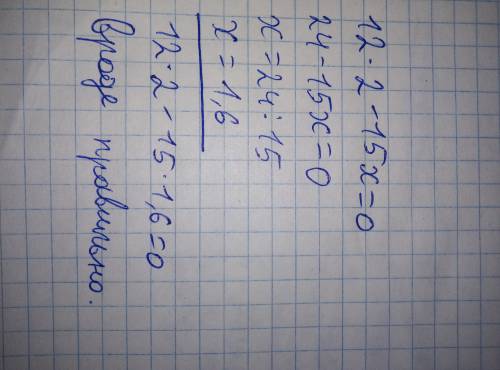 12·2-15x=0
24-15x=0
x=24:15
x=1,6
12·2-15·1,6=0
вроде правильно.